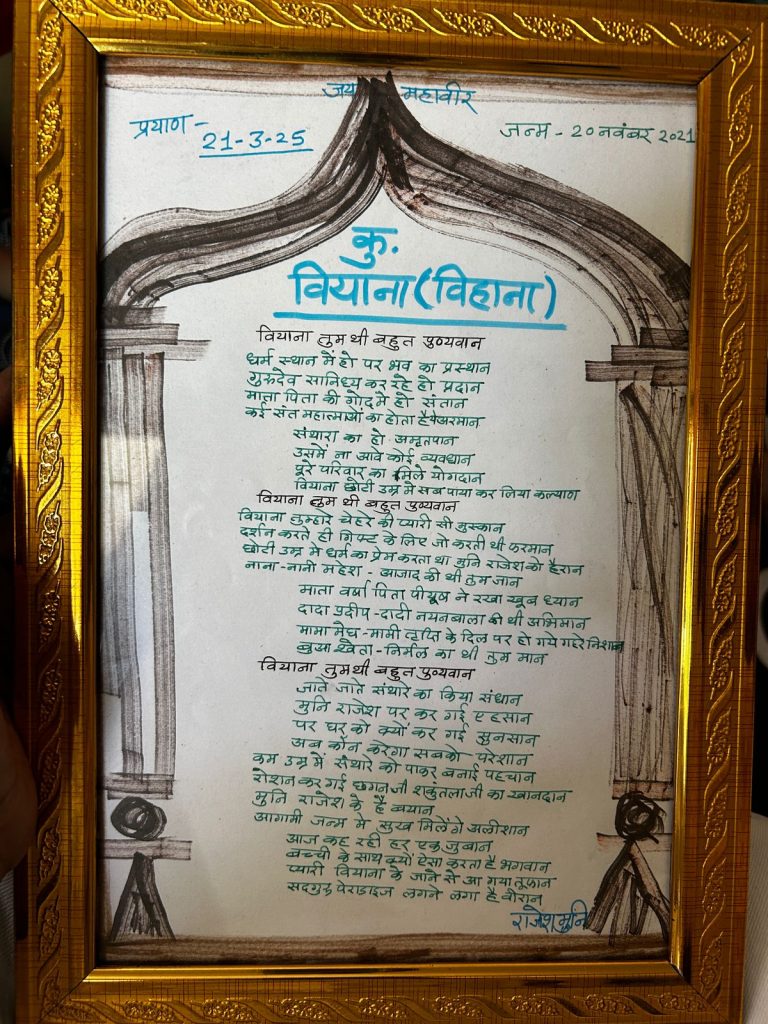 जय महावीर
प्रयाण - 21-3-25
जन्म - 20 नवंबर 2021
कु.
वियाना (विहाना)
वियाना तुम थी बहुत पुण्यवान
धर्म स्थान में हो पर भव का प्रस्थान
गुरुदेव सानिध्य कर रहे हो प्रदान
माता पिता की गोद मे हो संतान
कई संत महात्माओं का होता है अरमान
संथारा का हो अमृतपान
उसमें ना आवे कोई व्यवधान
पूरे परिवार का मिले योगदान
वियाना छोटी उम्र मे सब पाया कर लिया कल्याण
वियाना तुम थी बहुत पुण्यवान
वियाना तुम्हारे चेहरे की प्यारी सी मुस्कान
दर्शन करते ही गिफ्ट के लिए जो करती थी फरमान
छोटी उम्र मे धर्म का प्रेम करता था मुनि राजेश को हैरान
नाना - नानी महेश - आजाद की थी तुम जान
माता वर्षा पिता पीयूष ने रखा खूब ध्यान
दादा प्रदीप - दादी नयनबाला की थी अभिमान
मामा मेघ - मामी तृप्ति के दिल पर हो गये गहरे निशान
बुआ श्वेता - निर्मल का थी तुम मान
वियाना तुम थी बहुत पुण्यवान
जाते जाते संथारे का किया संधान
मुनि राजेश पर कर गई एहसान
पर घर को क्यों कर गई सुनसान
अब कौन करेगा सबको परेशान
कम उम्र में संथारे को पाकर बनाई पहचान
रोशन कर गई छगनजी शकुंतलाजी का खानदान
मुनि राजेश के है बयान
आगामी जन्म मे सुख मिलेंगे अलीशान
आज कह रही हर एक जुबान
बच्ची के साथ क्यों ऐसा करता है भगवान
प्यारी वियाना के जाने से आ गया तूफान
सदगुरु पेराडाइज लगने लगा है वीरान
राजेश मुनि